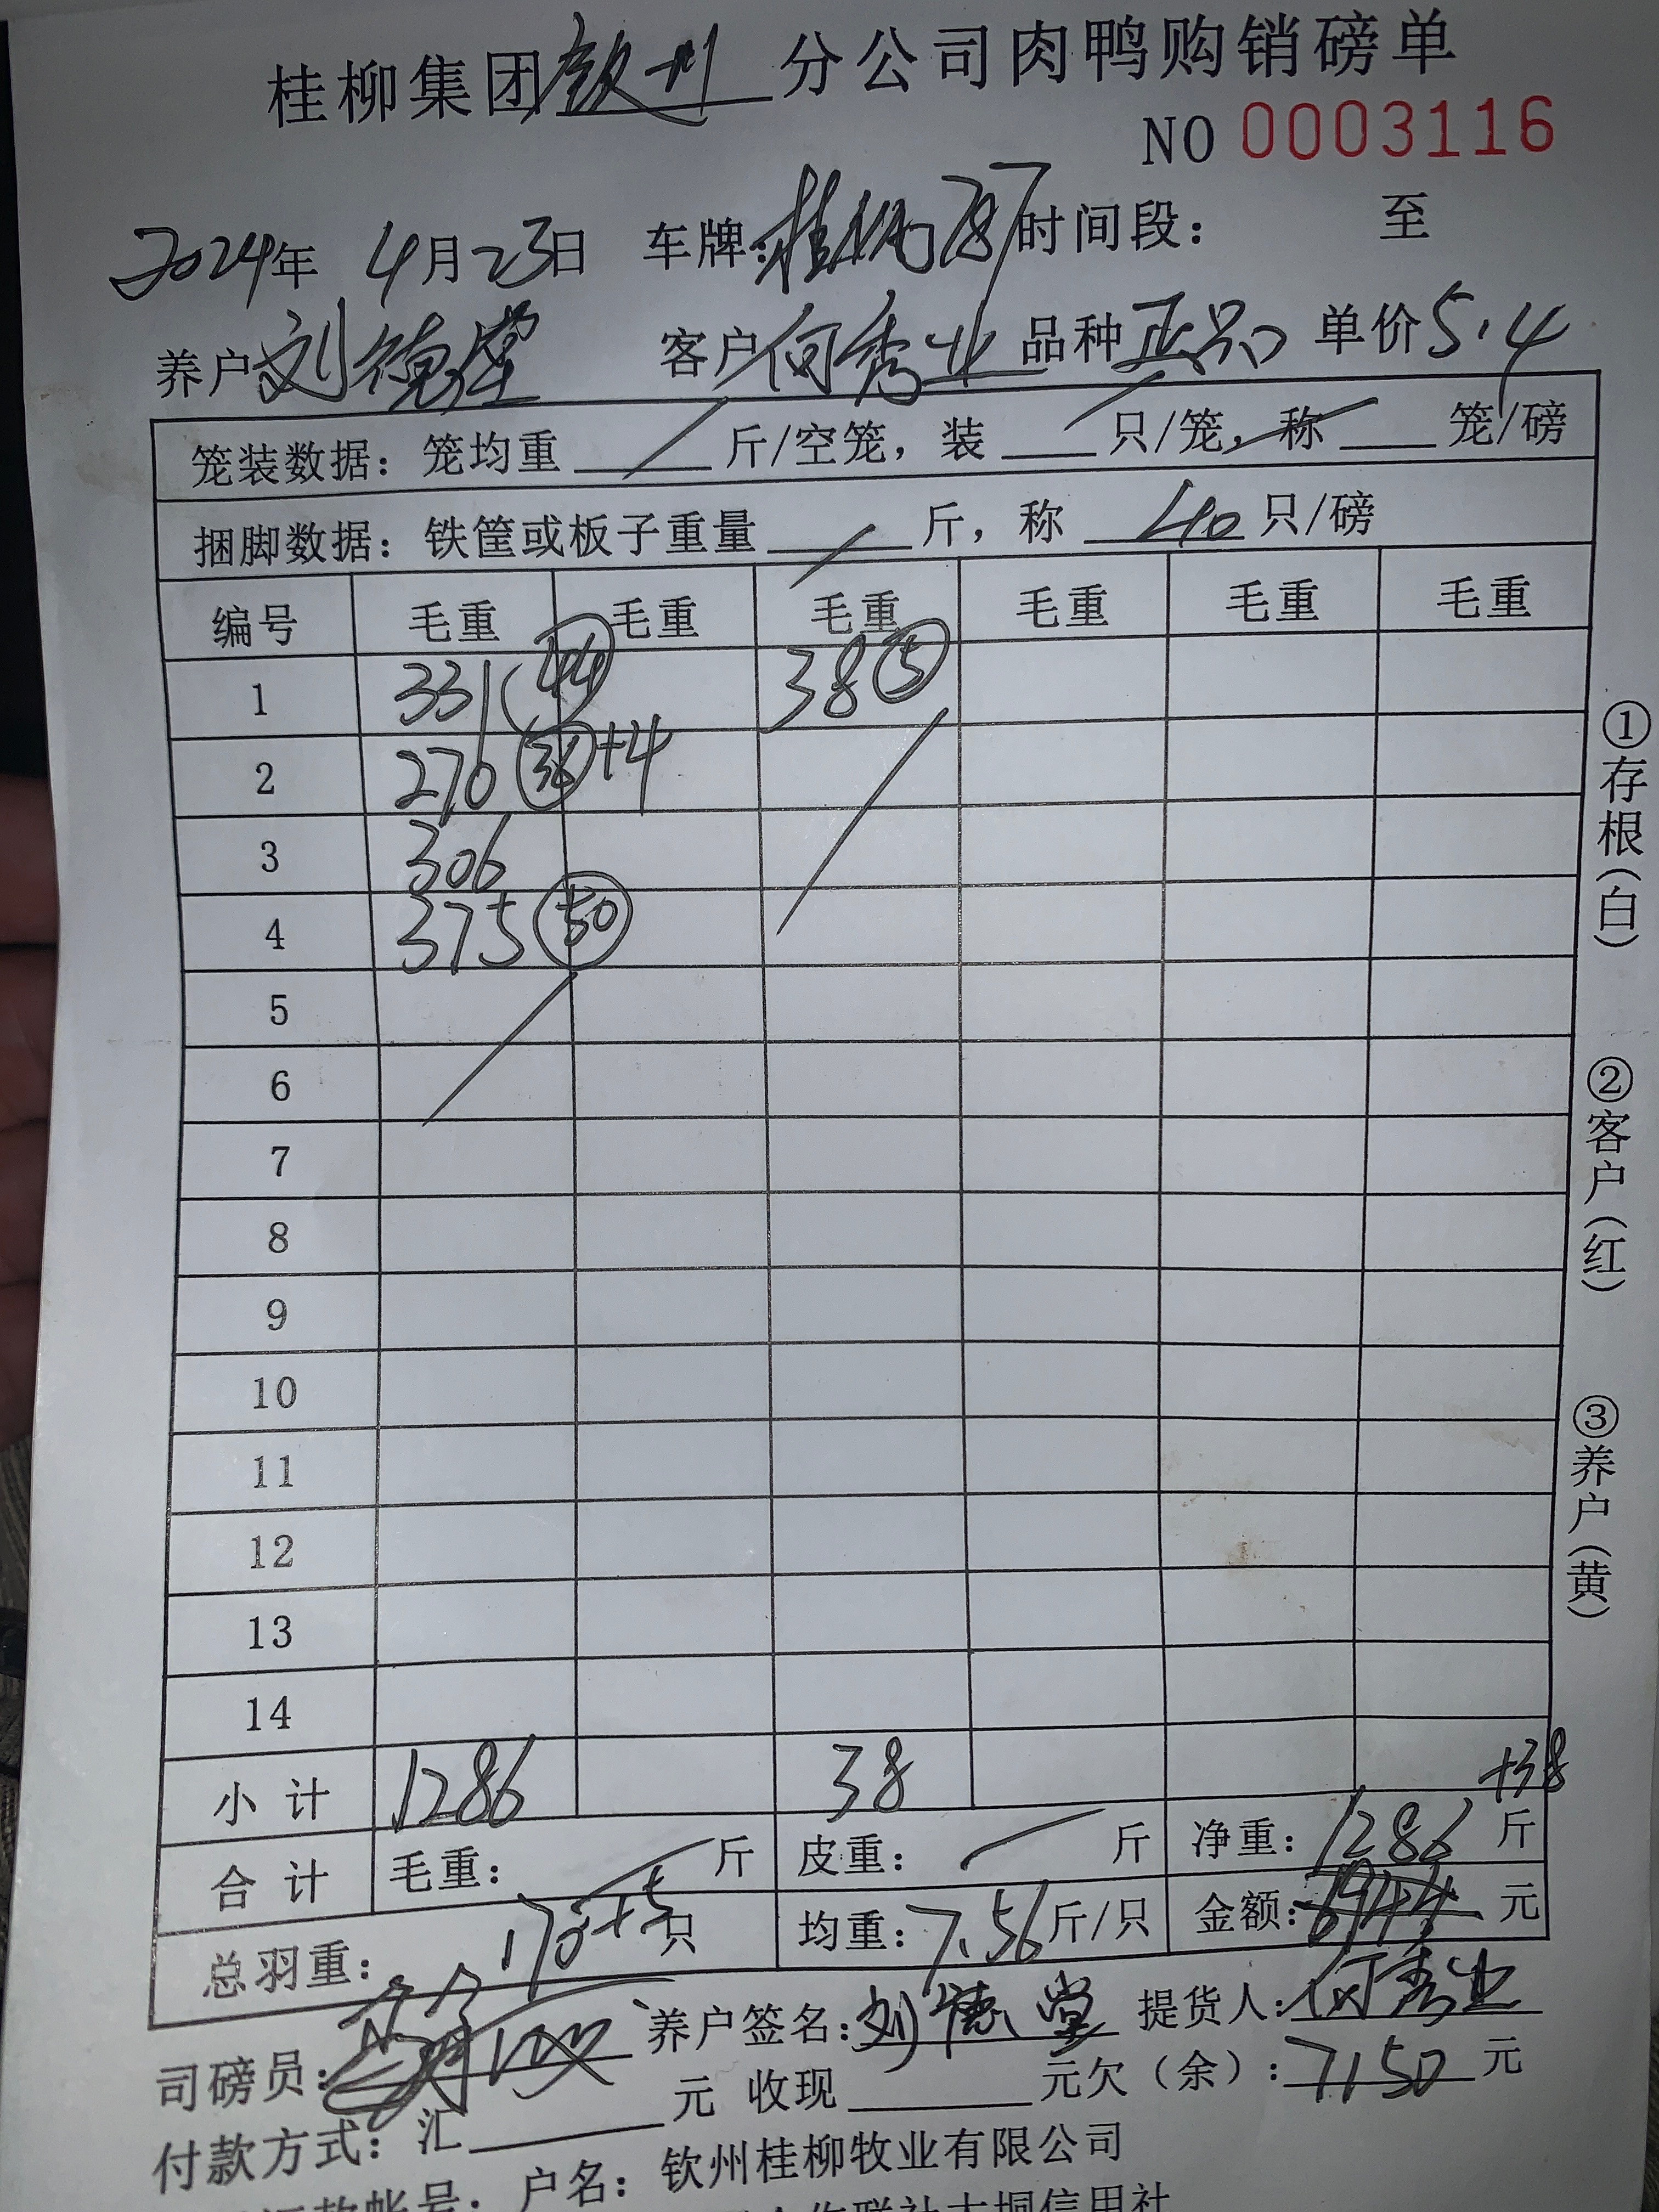 桂柳集团钦州分公司肉鸭购销磅单
NO 0003116
2024年 4月23日 车牌:桂柳787 时间段: 至
养户刘德堂 客户何秀业 品种正品 单价5.4
笼装数据: 笼均重 / 斤/空笼, 装 / 只/笼, 称 / 笼/磅
捆脚数据: 铁筐或板子重量 / 斤, 称 40 只/磅
编号 毛重 毛重 毛重 毛重 毛重 毛重
1 331(44) 38(5)
2 270(36)+4
3 306
4 375(50)
5
6
7
8
9
10
11
12
13
14
小计 1286 38
+38
合计 毛重: 斤 皮重: / 斤 净重: 1286 斤
总羽重: 170+5只 均重: 7.56斤/只 金额: 6944 元
司磅员: 养户签名: 刘德堂 提货人: 何秀业
付款方式: 汇 元 收现 元欠(余): 7150 元
户名: 钦州桂柳牧业有限公司
①存根(白) ②客户(红) ③养户(黄)